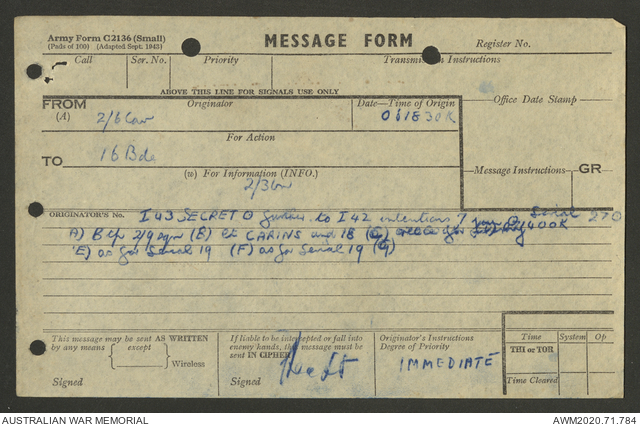 Army Form C2136 (Small)
(Pads of 100) (Adapted Sept. 1943)
MESSAGE FORM
Register No.
Call
Ser. No.
Priority
Transmission Instructions
ABOVE THIS LINE FOR SIGNALS USE ONLY
FROM
(A)
Originator
Date—Time of Origin
Office Date Stamp
2/6 Cav
061830K
For Action
TO
16 Bde
(w) For Information (INFO.)
Message Instructions
GR
2/3
ORIGINATOR'S No.
I 43 SECRET to I 42 intentions 7 Serial 270
A) B 2/9 (B) Lt CARINS and 18 (C) 1400K
'E) as for Serial 19 (F) as for Serial 19 (G)
This message may be sent AS WRITTEN
by any means
except
Wireless
Signed
If liable to be intercepted or fall into
enemy hands, the message must be
sent IN CIPHER
Signed
Originator's Instructions
Degree of Priority
IMMEDIATE
Time
System
Op
THI or TOR
Time Cleared
AUSTRALIAN WAR MEMORIAL
AWM2020.71.784